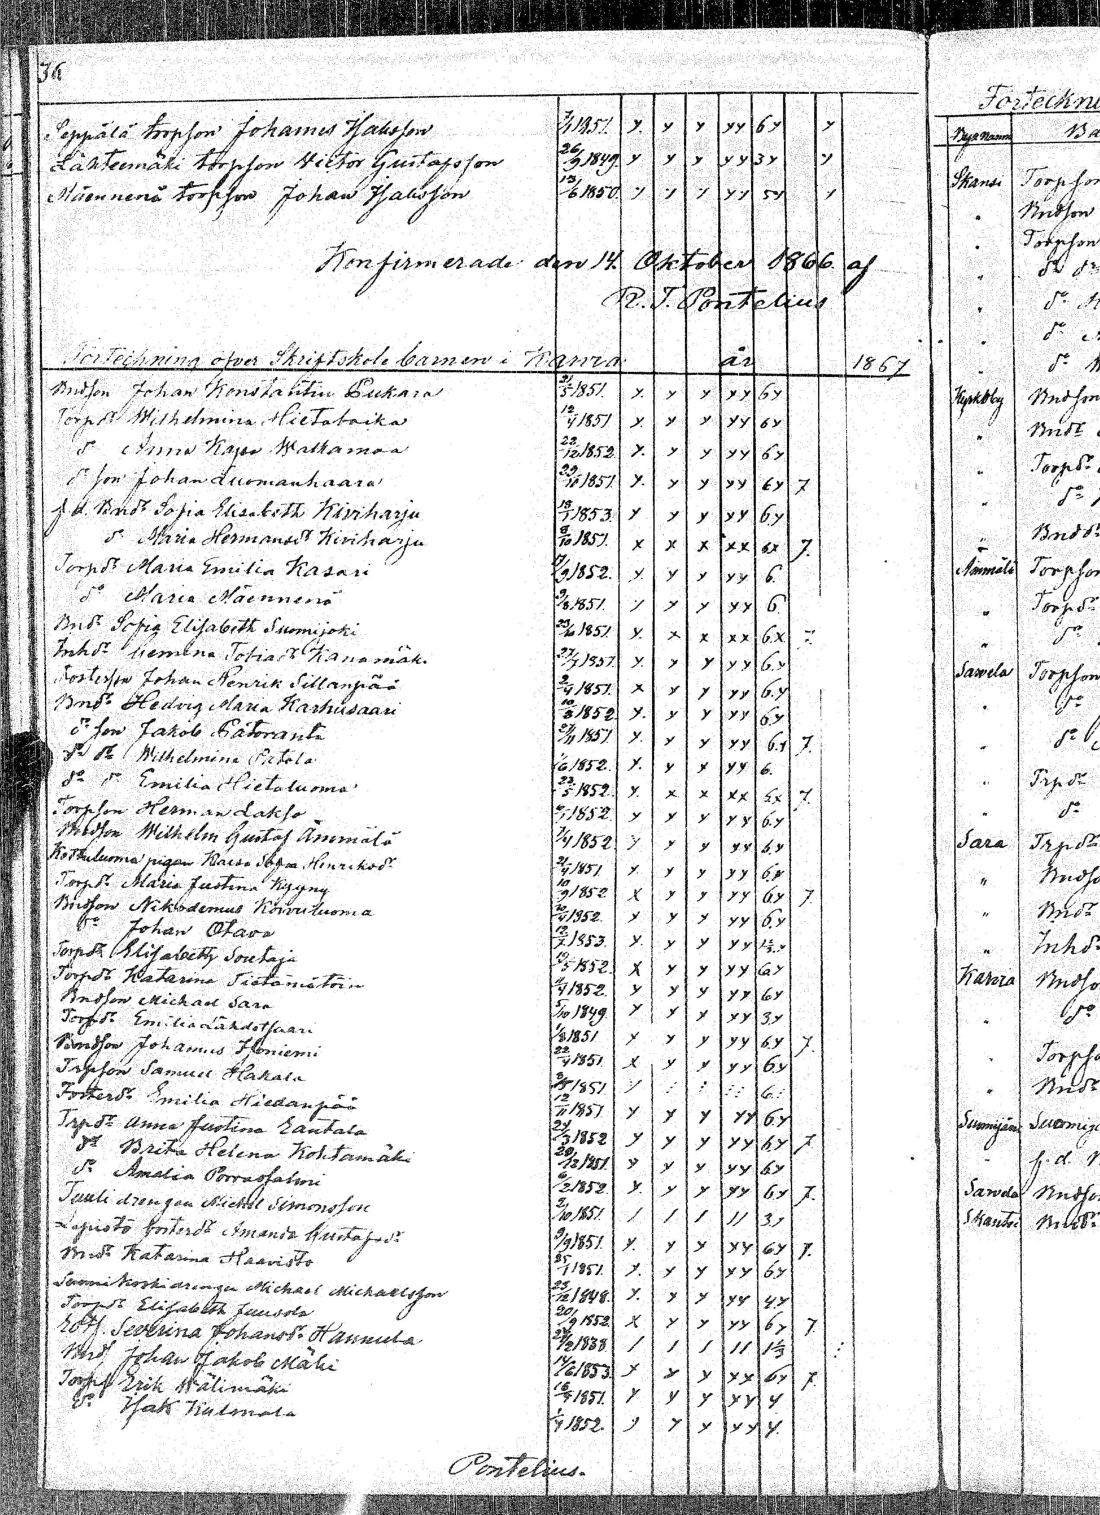 36
Seppälä torpson Johannes Isaksson 1851. y. y y yy 6y y
Lähteemäki torpson Victor Gustafsson 26/9 1849 y y y yy 3y y
Mäennenä torpson Johan Isaksson 13/6 1850. y y y yy 5y y
Konfirmerade den 14. Oktober 1866 af
R. J. Pontelius
Förteckning öfver Skriftskole barnen i Karvia år 1867
Bndson Johan Konstantin Pukara 21/5 1851. y. y y yy 6y
Torpdr Wilhelmina Hietaboika 12/4 1851 y. y y yy 6y
do Anna Kajsa Walkamaa 22/12 1852. y. y y yy 6y
do son Johan Luomanhaara 29/10 1851. y. y y yy 6y 7.
f.d. Bndr Sofia Elisabeth Kiviharju 18/1 1853. y y y yy 6y
do Maria Hermansdr Kiviharju 8/10 1851. x x x xx 6x 7.
Torpdr Maria Emilia Kasari 17/9 1852. y. y y yy 6.
do Maria Mäennenä 9/8 1851. y y y yy 6
Bndr Sofia Elisabeth Suomijoki 23/6 1851 y. x x xx 6x 7.
Inhdr Tobiasdr Kanamäk. 27/7 1851. y. y y yy 6y
Fosterson Johan Henrik Sillanpää 2/4 1851. x y y yy 6y
Bndr Hedvig Maria Karhusaari 10/3 1852. y. y y yy 6y
do son Jakob Pätoranta 27/11 1851 y. y y yy 6y 7.
do dr Wilhelmina Patola 1/6 1852. y. y x yy 6.
do dr Emilia Hietaluoma 23/5 1852. y. x x xx 6x 7.
Torpson Herman Lakso 1852. y y y yy 6y
Bndson Wilhelm Gustaf Ämmälä 7/4 1852 y y y yy 6y
pigan Kaisa Sofia Henriksdr 21/4 1851 y. y y yy 6y
Torpdr Maria Justina Kyyny 10/9 1852 x y y yy 6y 7.
Bndson Nikodemus Koivuluoma 1852. y y y yy 6y
do Johan Otava 12/2 1853. y. y y yy
Torpdr Elisabeth Soutaja 19/5 1852. x y y yy 6y
Torpdr Katarina Tietämätöin 1852. y y y yy 6y
Bndson Michael Sara 5/10 1849 y y y yy 3y
Torpdr Emilia Lähdetsaari 1/8 1851 x y y yy 6y 7.
Bondson Johannes Honiemi 22/4 1851 x y y yy 6y
Trpson Samuel Hakala 1851 6
Fosterdr Emilia Hiedanpää 12/11 1851 y y y yy 6y
Trpdr Anna Justina Rantala 24/3 1852 y y y yy 6y 7
dr Brita Helena Kohtamäki 20/12 1851. y y y yy 6y
dr Amalia Porrassalmi 6/2 1852. y. y y yy 6y 7.
drengen Michel Simonsson 2/10 1851. 1 1 1 11 3y
Lepistö fosterdr Amanda Gustafsdr 9/9 1851. y. y y yy 6y 7.
Bndr Katarina Haavisto 25/1 1851. y. y y yy 6y
Suomikoski drengen Michael Michaelsson 25/12 1848. y. y y yy 4y
Torpdr Elisabeth Juusola 20/9 1852. x y y yy 6y 7.
Severina Johansdr Hannula 1838. 1 1 1 11
Bnds Johan Jakob Mäki 14/6 1853. x x y yx 6y 7.
Torps Erik Wälimäki 16/5 1851. y y y yy 4
do Isak Kulmala 1/4 1852. y y y yy 4.
Pontelius.
Förteckn
Byanamn Ba
Skansi Torpson
" Bndson
" Torpson
" do dr
" do
" do
" do
Kyrkoby Bndson
" Bndr
" Torpdr
" do
" Bnddr
Ämmälä Torpson
" Torpdr
" do
Sawela Torpson
" do
" do
" Trpdr
" do
Sara Trpdr
" Bndso
" Bndr
" Inhdr
Karvia Bndso
" do
" Torpso
" Bndr
Suomijärvi Suomijä
" f.d.
Sawela Bndson
Skantsi Bnddr